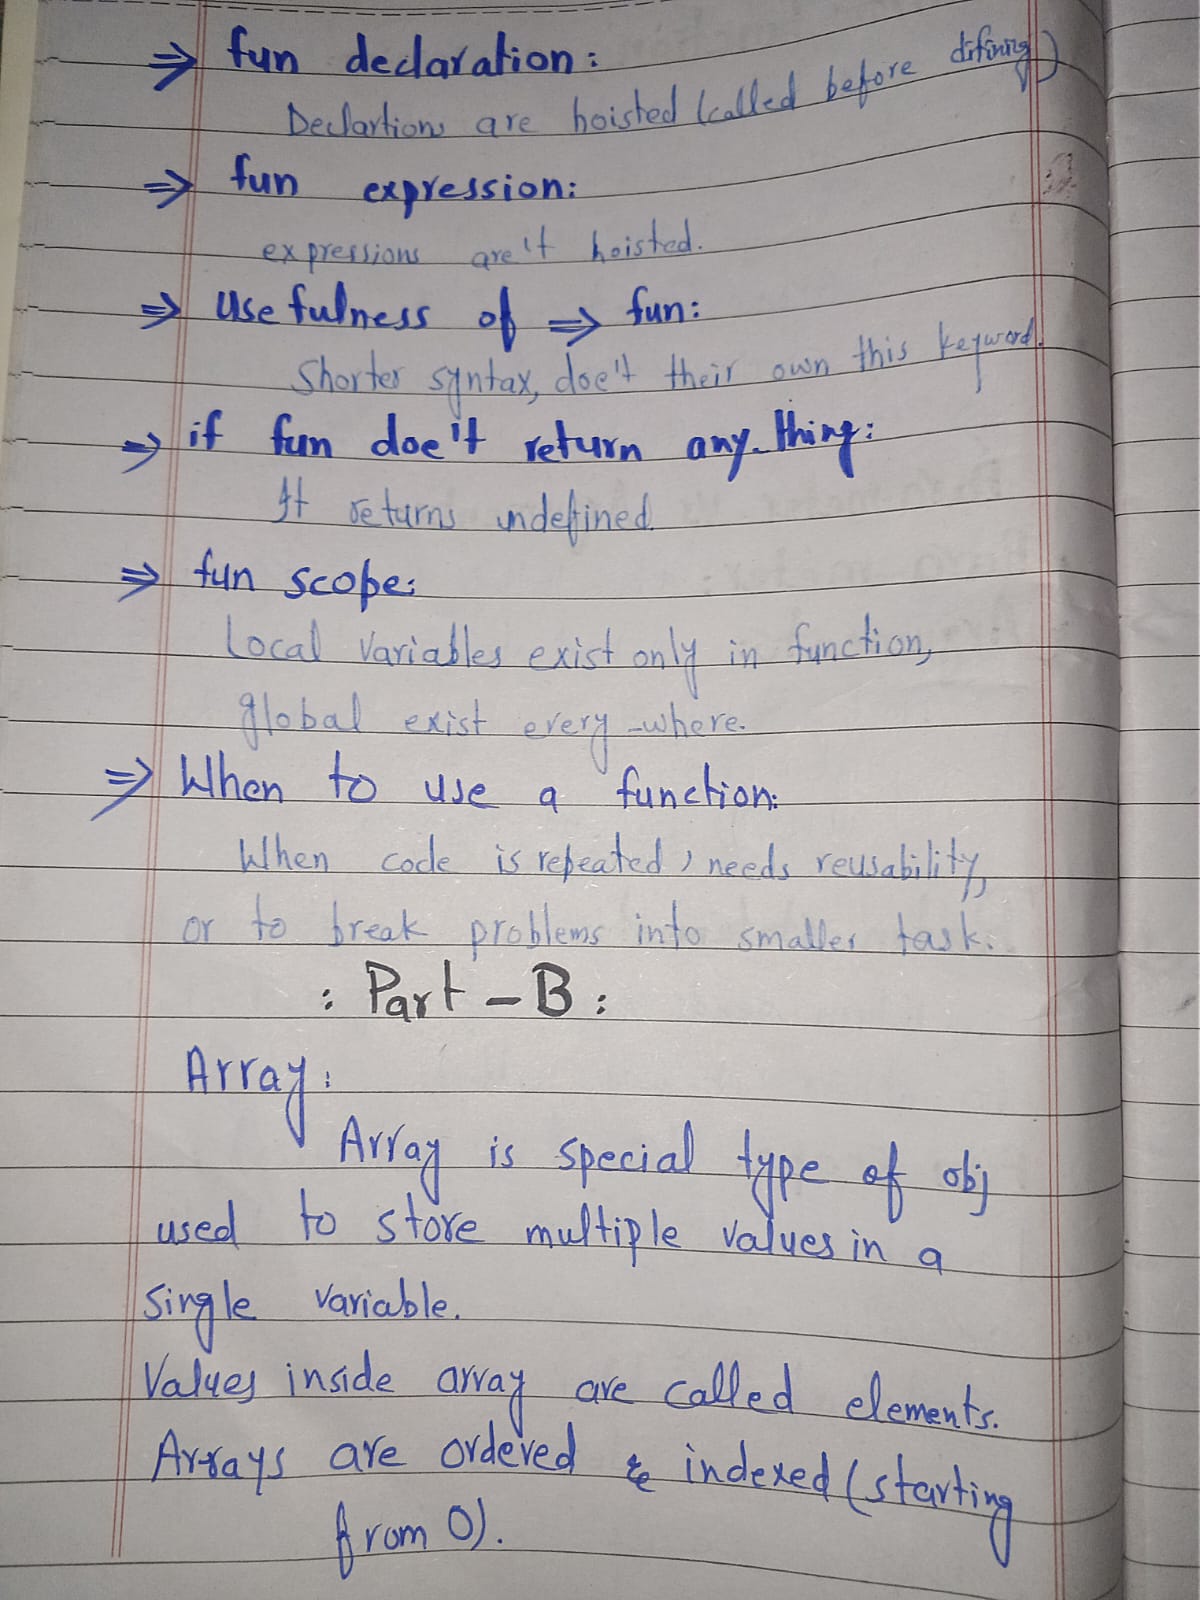 ⇒ fun declaration:
Declartions are hoisted (called before difining)
⇒ fun expression:
expressions are't hoisted.
⇒ Usefulness of ⇒ fun:
Shorter syntax, doe't their own this keyword.
⇒ if fun doe't return any-thing:
It returns undefined.
⇒ fun scope:
Local variables exist only in function,
global exist every-where.
⇒ When to use a function:
When code is repeated, needs reusability,
or to break problems into smaller task.
: Part-B:
Array:
Array is special type of obj
used to store multiple values in a
single variable.
Values inside array are called elements.
Arrays are ordered & indexed (starting
from 0).